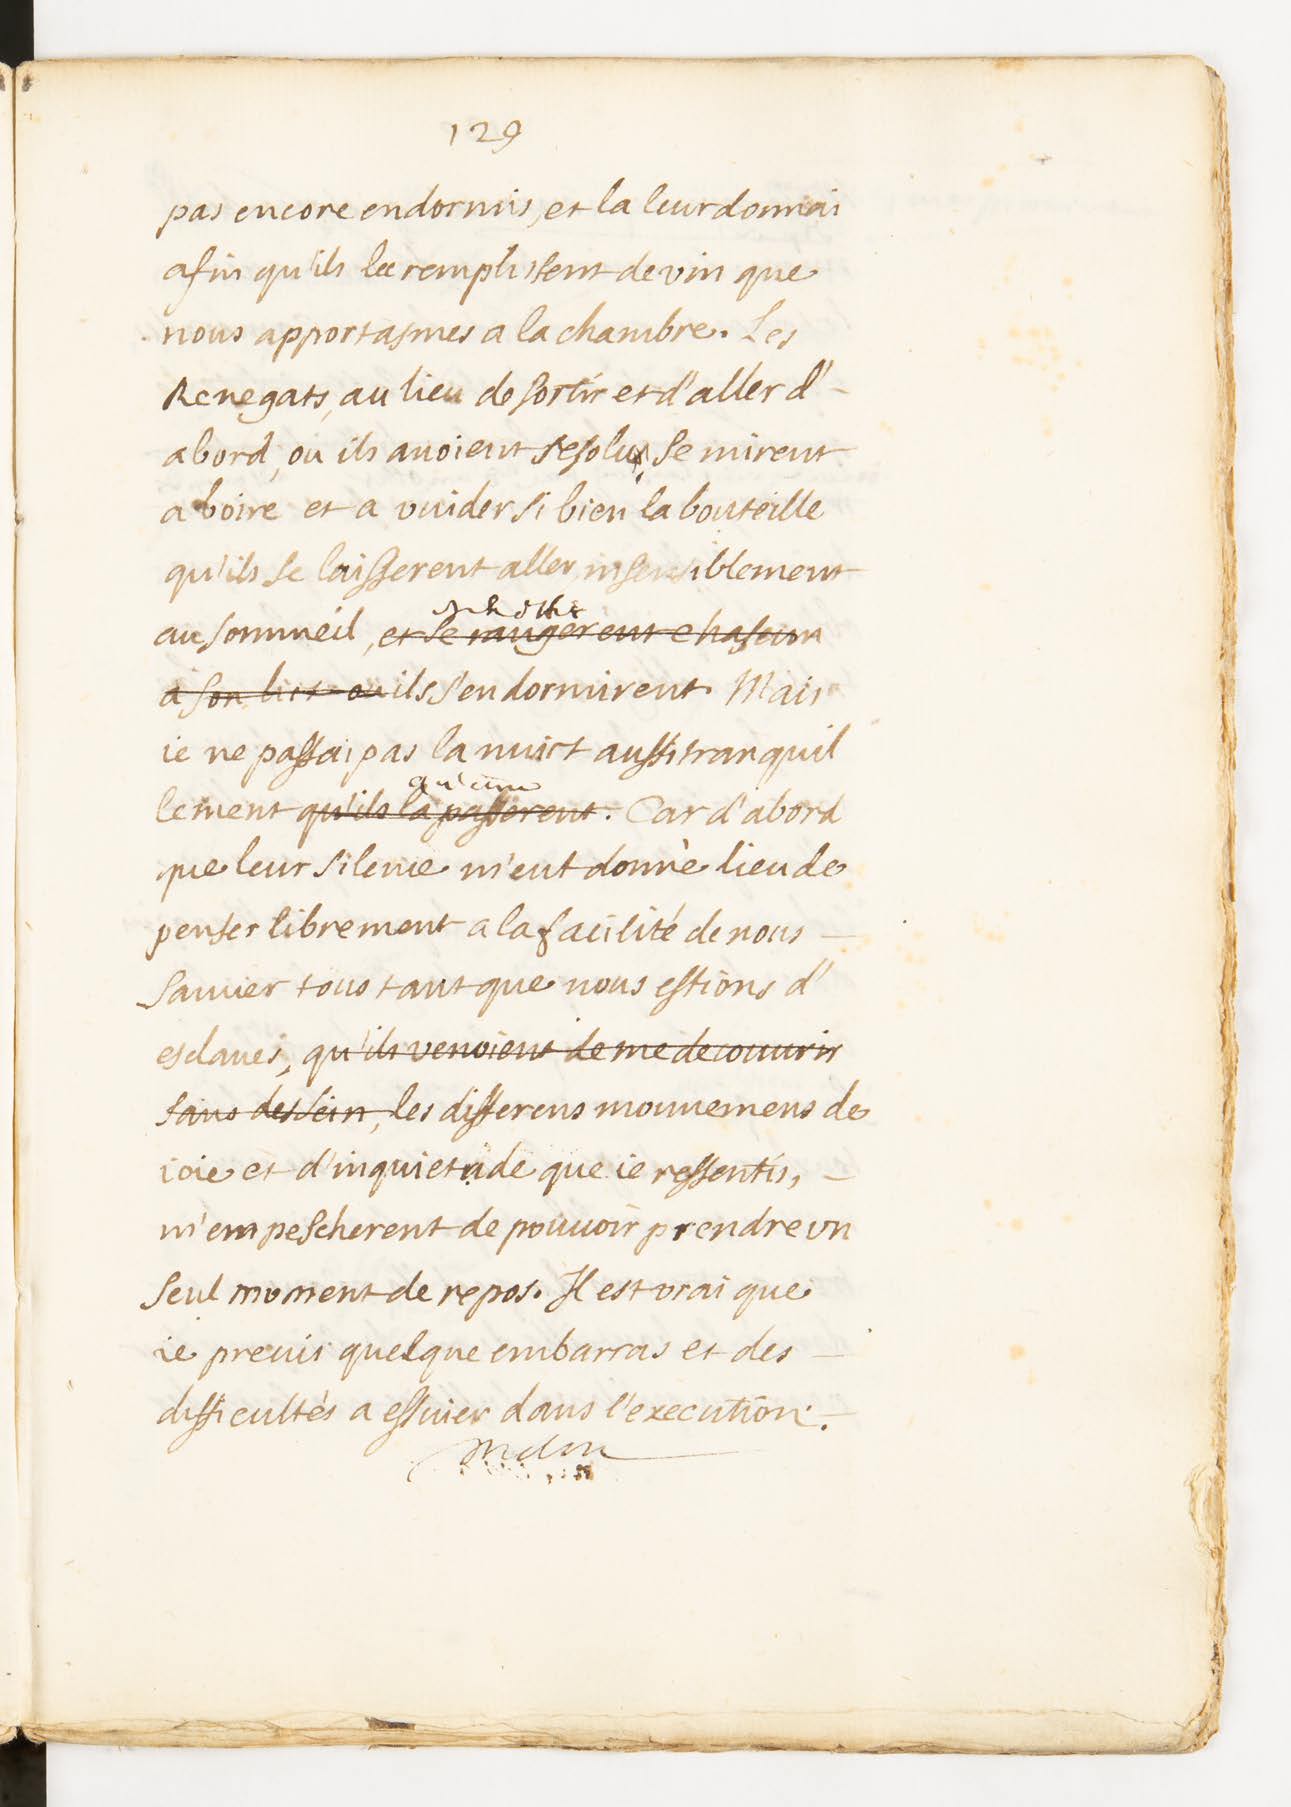 129
pas encore endormis, et la leur donnai
afin qu'ils la remplissent de vin que
nous apportasmes a la chambre. Les
Renegats, au lieu de sortir et d'aller d'-
abord, ou ils auoient resolu, se mirent
a boire et a vuider si bien la bouteille
qu'ils se laisserent aller insensiblement
au sommeil, et se rangerent chascun
a son lict ou ils s'endormirent. Mais
ie ne passai pas la nuict aussi tranquil
qu'eux
lement qu'ils la passerent. Car d'abord
que leur silence m'eut donné lieu de
penser librement a la facilité de nous —
sauuer tous tant que nous estions d'
esclaues, qu'ils venoient de me decouurir
sans dessein, les differens mouuemens de
ioie et d'inquietude que ie ressentis, —
m'empescherent de pouuoir prendre vn
seul moment de repos. Il est vrai que
ie preuis quelque embarras et des —
difficultés a essuier dans l'execution. —